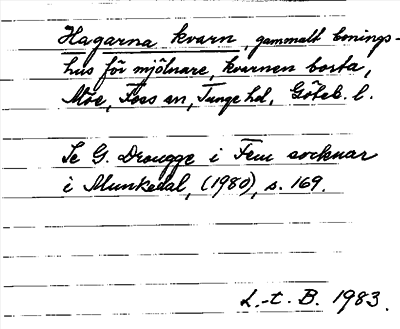 Hagarna kvarn, gammalt bonings-
hus för mjölnare, kvarnen borta,
Moe, Foss sn, Tunge hd, Göteb. l.
Se G. Drougge i Fem socknar
i Munkedal, (1980), s. 169.
L-t. B. 1983.